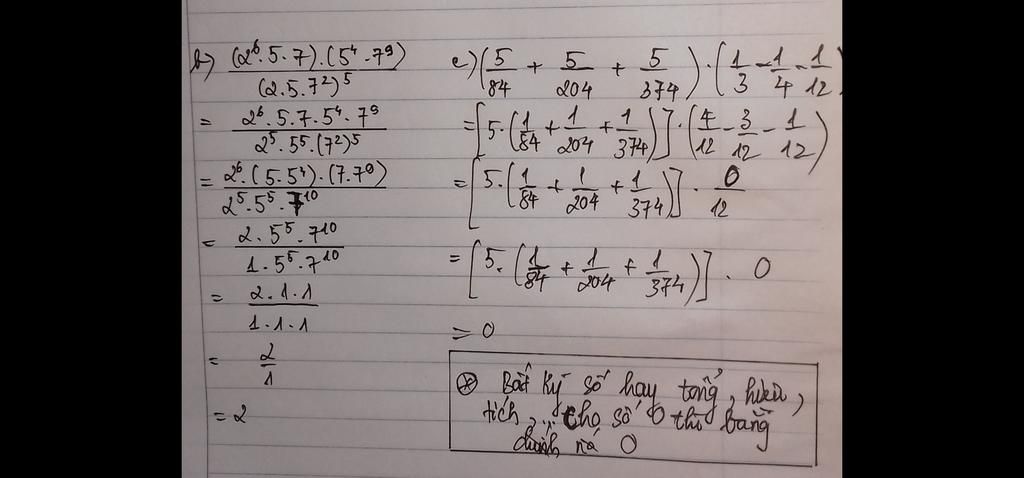 b) (2⁶.5.7).(5⁴.7⁹) / (2.5.7²)⁵
= 2⁶.5.7.5⁴.7⁹ / 2⁵.5⁵.(7²)⁵
= 2⁶.(5.5⁴).(7.7⁹) / 2⁵.5⁵.7¹⁰
= 2.5⁵.7¹⁰ / 1.5⁵.7¹⁰
= 2.1.1 / 1.1.1
= 2/1
= 2
c) (5/84 + 5/204 + 5/374).(1/3 - 1/4 - 1/12)
= [5.(1/84 + 1/204 + 1/374)].(4/12 - 3/12 - 1/12)
= [5.(1/84 + 1/204 + 1/374)].0/12
= [5.(1/84 + 1/204 + 1/374)].0
= 0
⊛ Bất kỳ số hay tổng, hiệu,
tích,... cho số 0 thì bằng
chính nó 0